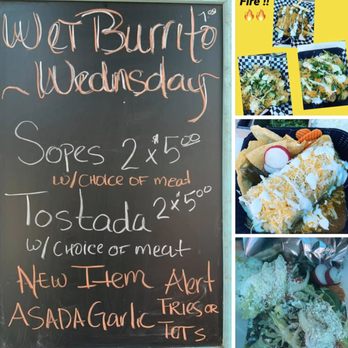 Wet Burrito 7.00
~ Wednsday ~
Sopes 2x$5.00
w/Choice of meat
Tostada 2x5.00
w/Choice of meat
New Item Alert
Asada Garlic Fries or
Tots
Fire !!
🔥🔥